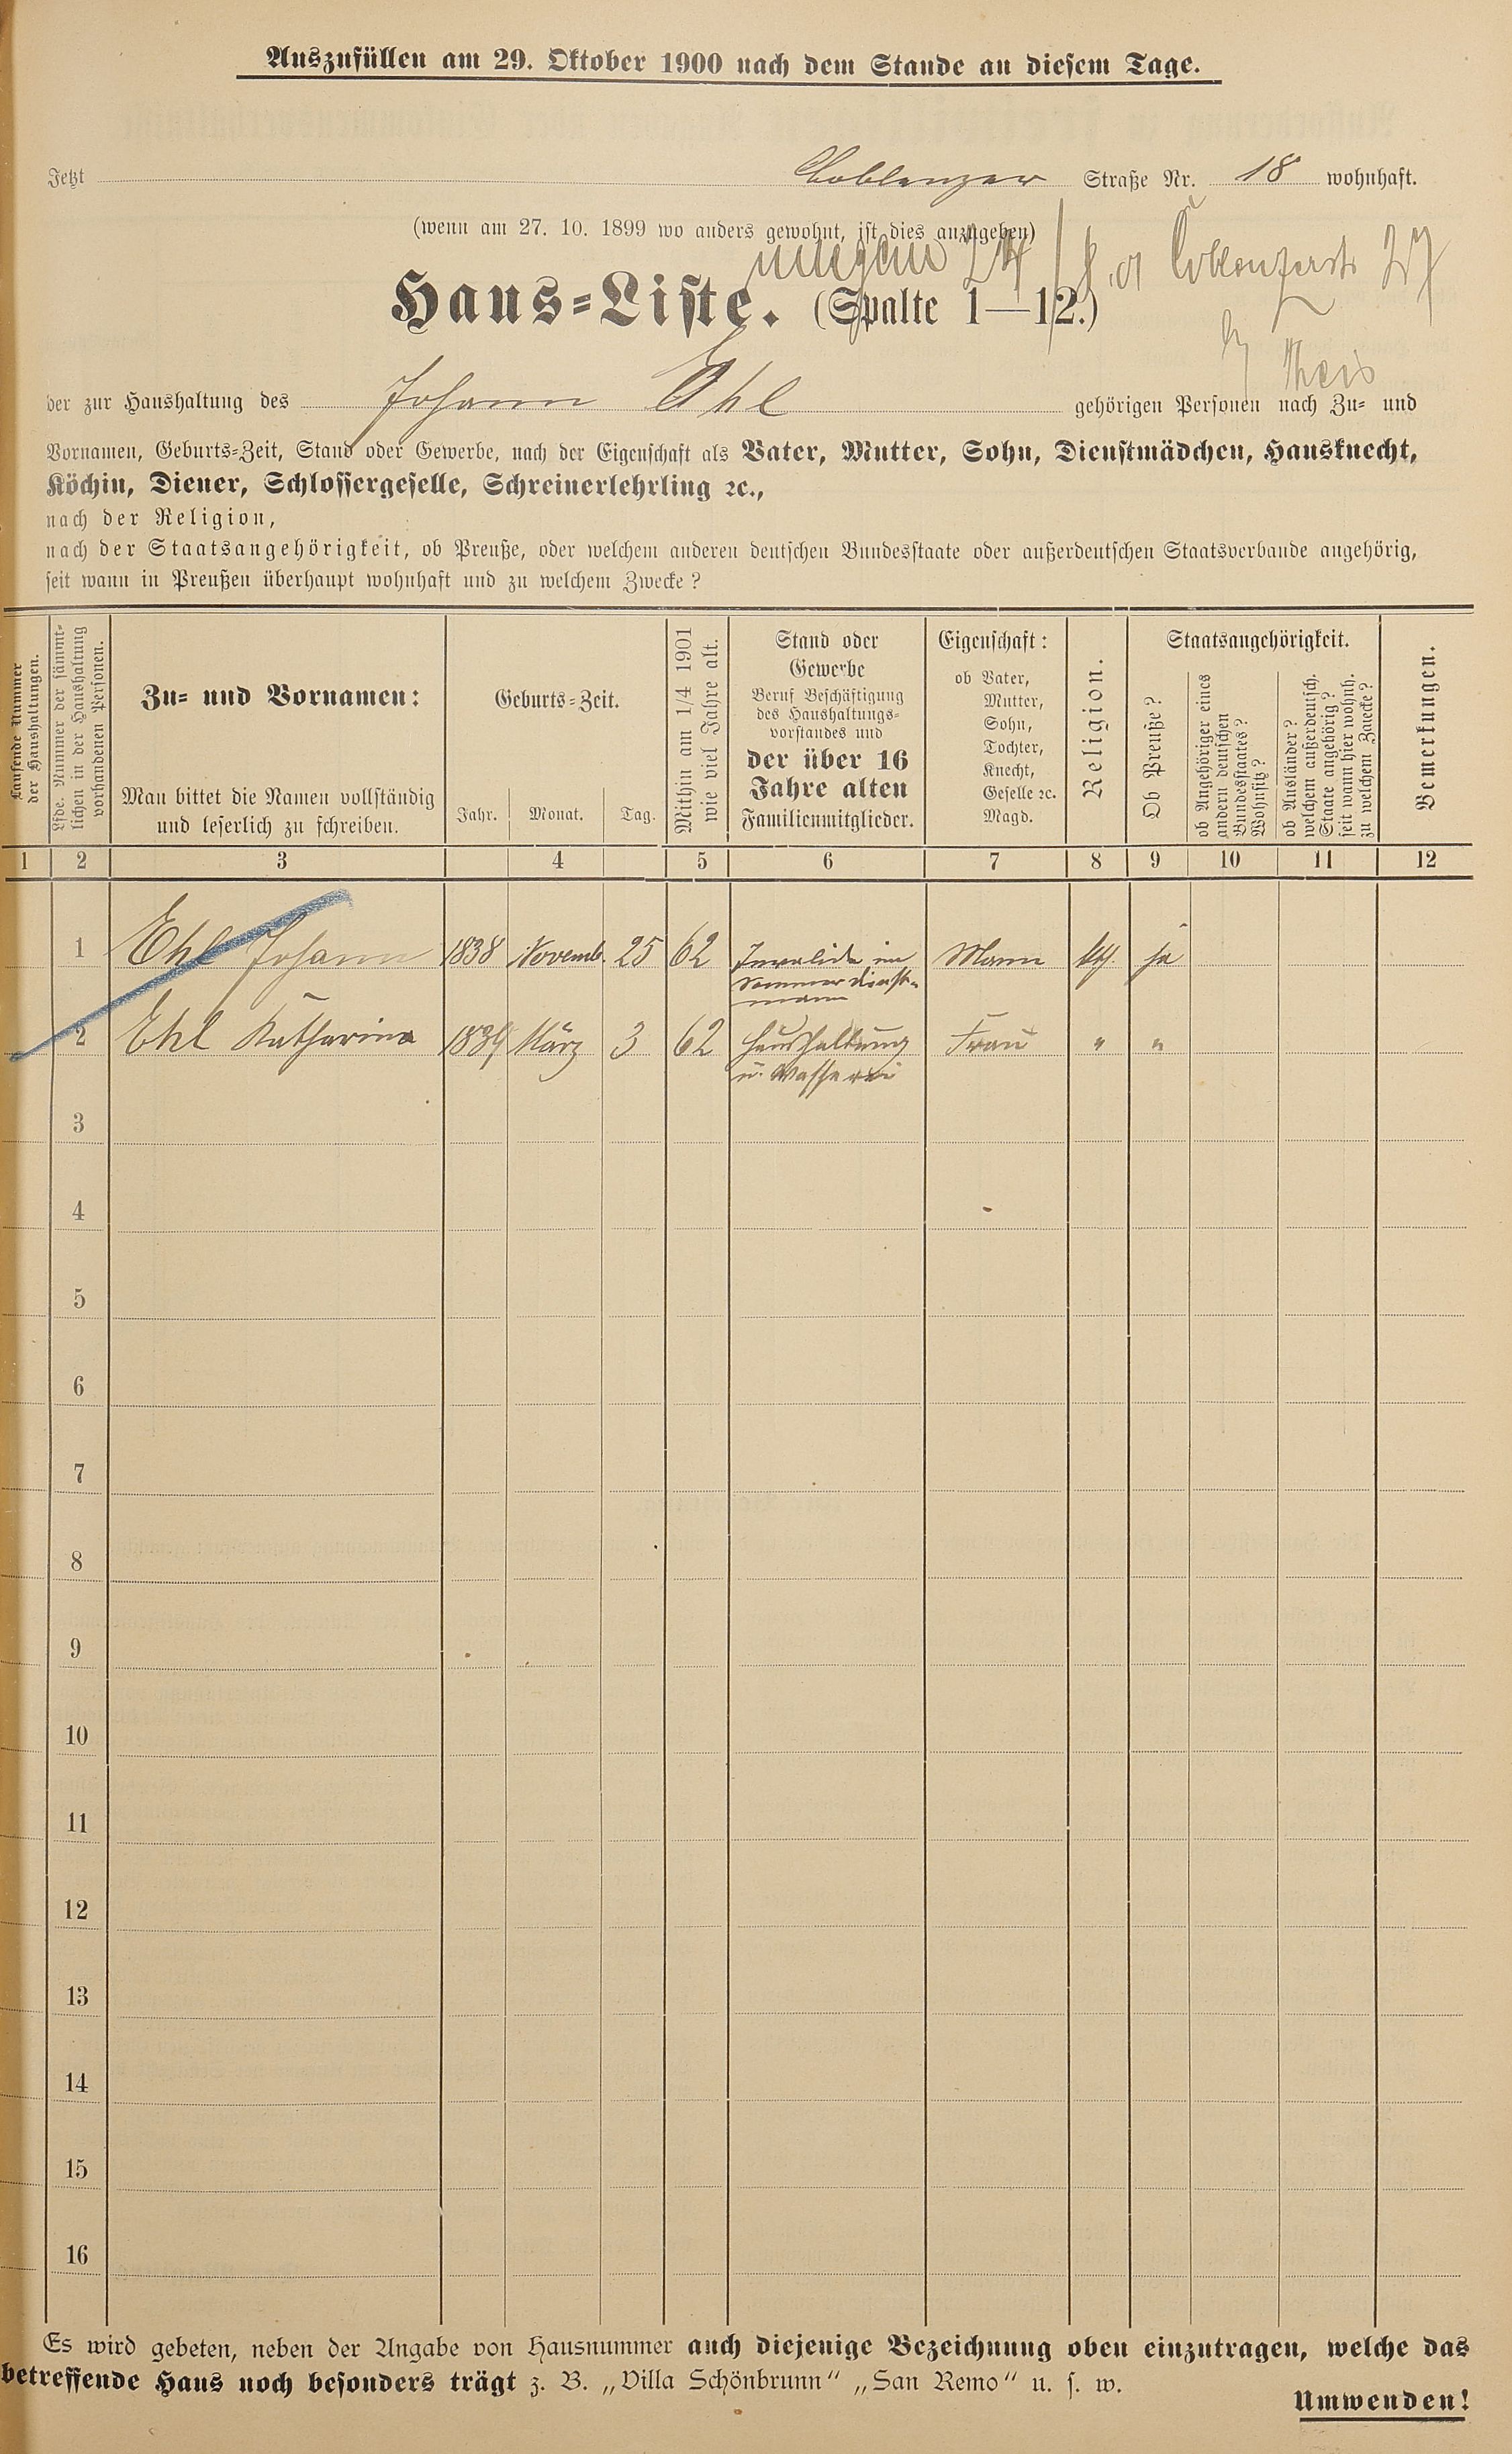 Auszufüllen am 29. Oktober 1900 nach dem Stande an diesem Tage.
Jetzt Coblenzer Straße Nr. 18 wohnhaft.
(wenn am 27. 10. 1899 wo anders gewohnt, ist dies anzugeben)
Coblenzerstr 27
Haus-Liste. (Spalte 1—12.)
Theis
der zur Haushaltung des Johann Ehl gehörigen Personen nach Zu- und
Vornamen, Geburts-Zeit, Stand oder Gewerbe, nach der Eigenschaft als Vater, Mutter, Sohn, Dienstmädchen, Hausknecht,
Köchin, Diener, Schlossergeselle, Schreinerlehrling ꝛc.,
nach der Religion,
nach der Staatsangehörigkeit, ob Preuße, oder welchem anderen deutschen Bundesstaate oder außerdeutschen Staatsverbande angehörig,
seit wann in Preußen überhaupt wohnhaft und zu welchem Zwecke?
Laufende Nummer
der Haushaltungen.
Lfde. Nummer der sämmt-
lichen in der Haushaltung
vorhandenen Personen.
Zu- und Vornamen:
Man bittet die Namen vollständig
und leserlich zu schreiben.
Geburts-Zeit.
Jahr. Monat. Tag.
Mithin am 1/4 1901
wie viel Jahre alt.
Stand oder
Gewerbe
Beruf Beschäftigung
des Haushaltungs-
vorstandes und
der über 16
Jahre alten
Familienmitglieder.
Eigenschaft:
ob Vater,
Mutter,
Sohn,
Tochter,
Knecht,
Geselle ꝛc.
Magd.
Religion.
Staatsangehörigkeit.
Ob Preuße?
ob Angehöriger eines
andern deutschen
Bundesstaates?
Wohnsitz?
ob Ausländer?
welchem außerdeutsch.
Staate angehörig?
seit wann hier wohnh.
zu welchem Zwecke?
Bemerkungen.
1 2 3 4 5 6 7 8 9 10 11 12
1 Ehl Johann 1838 Novemb. 25 62 Invalide im Mann kth. ja
Sommer dienst-
mann
2 Ehl Katharina 1839 März 3 62 Haushaltung Frau " "
u. Wascherei
3
4
5
6
7
8
9
10
11
12
13
14
15
16
Es wird gebeten, neben der Angabe von Hausnummer auch diejenige Bezeichnung oben einzutragen, welche das
betreffende Haus noch besonders trägt z. B. „Villa Schönbrunn" „San Remo" u. s. w.
Umwenden!